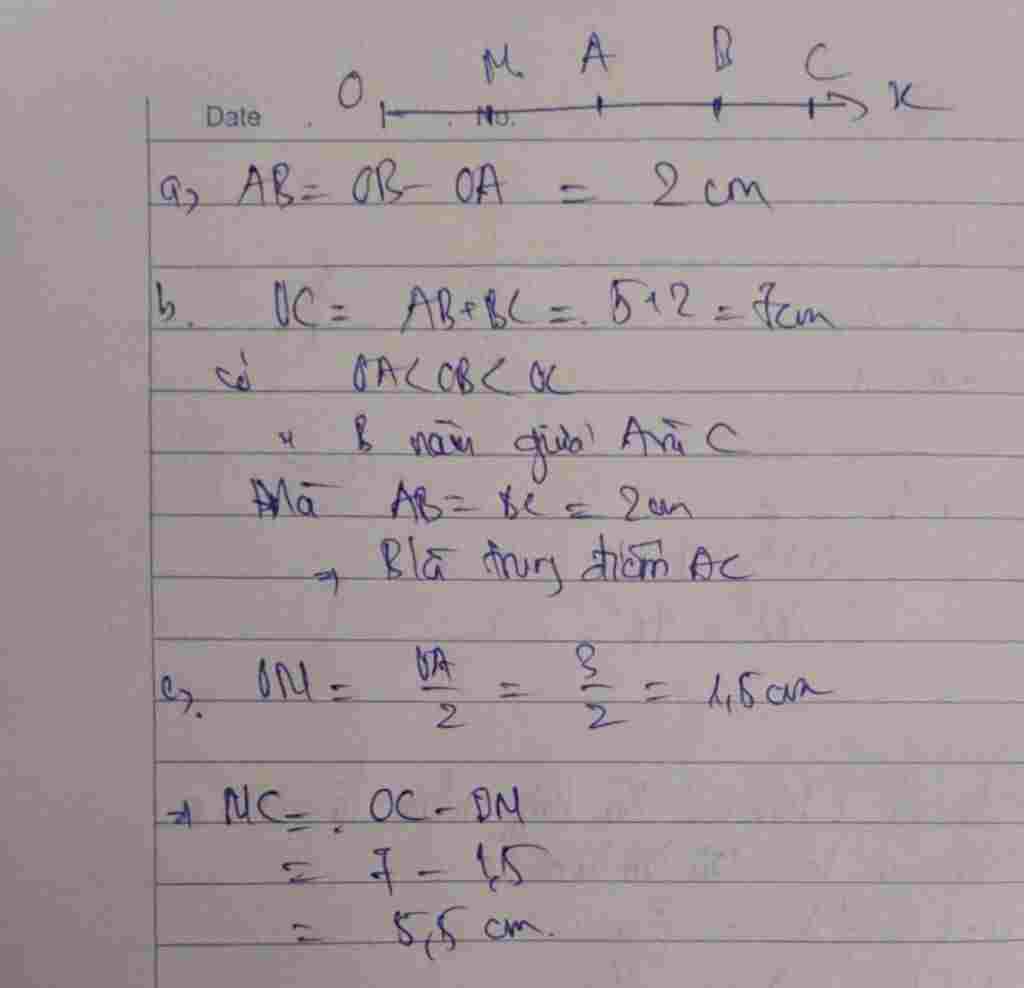 O M A B C x
Date . No.
a, AB = OB - OA = 2 cm
b. OC = AB + BC = 5 + 2 = 7cm
có OA < OB < OC
B nằm giữa A và C
Mà AB = BC = 2 cm
⇒ B là trung điểm AC
c, OM = OA/2 = 3/2 = 1,5 cm
⇒ MC = OC - OM
= 7 - 1,5
= 5,5 cm.